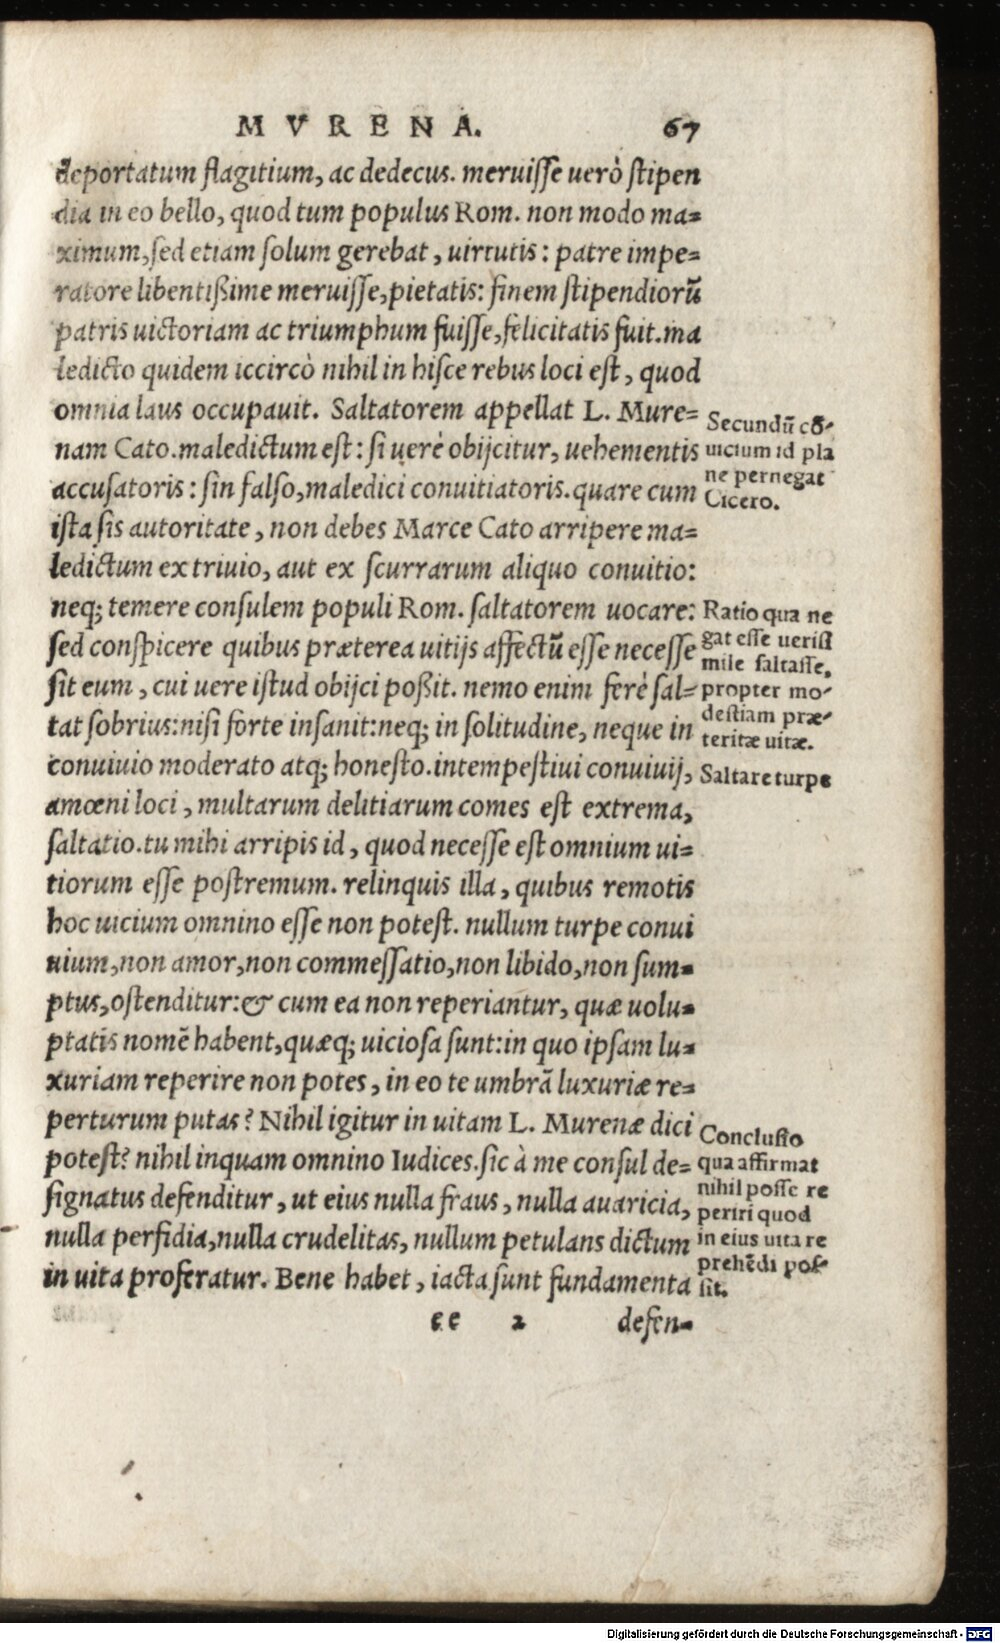 MVRENA. 67
deportatum flagitium, ac dedecus. meruiſſe uerò ſtipen
dia in eo bello, quod tum populus Rom. non modo ma=
ximum, ſed etiam ſolum gerebat, uirtutis: patre impe=
ratore libentißime meruiſſe, pietatis: finem ſtipendiorũ
patris uictoriam ac triumphum fuiſſe, felicitatis fuit. ma
ledicto quidem iccircò nihil in hiſce rebus loci eſt, quod
omnia laus occupauit. Saltatorem appellat L. Mure=
nam Cato. maledictum eſt: ſi uerè obijcitur, uehementis
accuſatoris: ſin falſo, maledici conuitiatoris. quare cum
iſta ſis autoritate, non debes Marce Cato arripere ma=
ledictum ex triuio, aut ex ſcurrarum aliquo conuitio:
neq; temere conſulem populi Rom. ſaltatorem uocare:
ſed conſpicere quibus præterea uitijs affectũ eſſe neceſſe
ſit eum, cui uere iſtud obijci poßit. nemo enim ferè ſal=
tat ſobrius: niſi forte inſanit: neq; in ſolitudine, neque in
conuiuio moderato atq; honeſto. intempeſtiui conuiuij,
amœni loci, multarum delitiarum comes eſt extrema,
ſaltatio. tu mihi arripis id, quod neceſſe eſt omnium ui=
tiorum eſſe poſtremum. relinquis illa, quibus remotis
hoc uicium omnino eſſe non poteſt. nullum turpe conui
uium, non amor, non commeſſatio, non libido, non ſum=
ptus, oſtenditur: & cum ea non reperiantur, quæ uolu=
ptatis nomẽ habent, quæq; uicioſa ſunt: in quo ipſam lu=
xuriam reperire non potes, in eo te umbrã luxuriæ re=
perturum putas? Nihil igitur in uitam L. Murenæ dici
poteſt? nihil inquam omnino Iudices. ſic à me conſul de=
ſignatus defenditur, ut eius nulla fraus, nulla auaricia,
nulla perfidia, nulla crudelitas, nullum petulans dictum
in uita proferatur. Bene habet, iacta ſunt fundamenta
ee 2 defen=
Secundũ cõ=
uicium id pla
ne pernegat
Cicero.
Ratio qua ne
gat eſſe ueriſi
mile ſaltaſſe,
propter mo=
deſtiam præ=
teritæ uitæ.
Saltare turpe
Concluſio
qua affirmat
nihil poſſe re
periri quod
in eius uita re
prehẽdi poſ=
ſit.
Digitalisierung gefördert durch die Deutsche Forschungsgemeinschaft - DFG